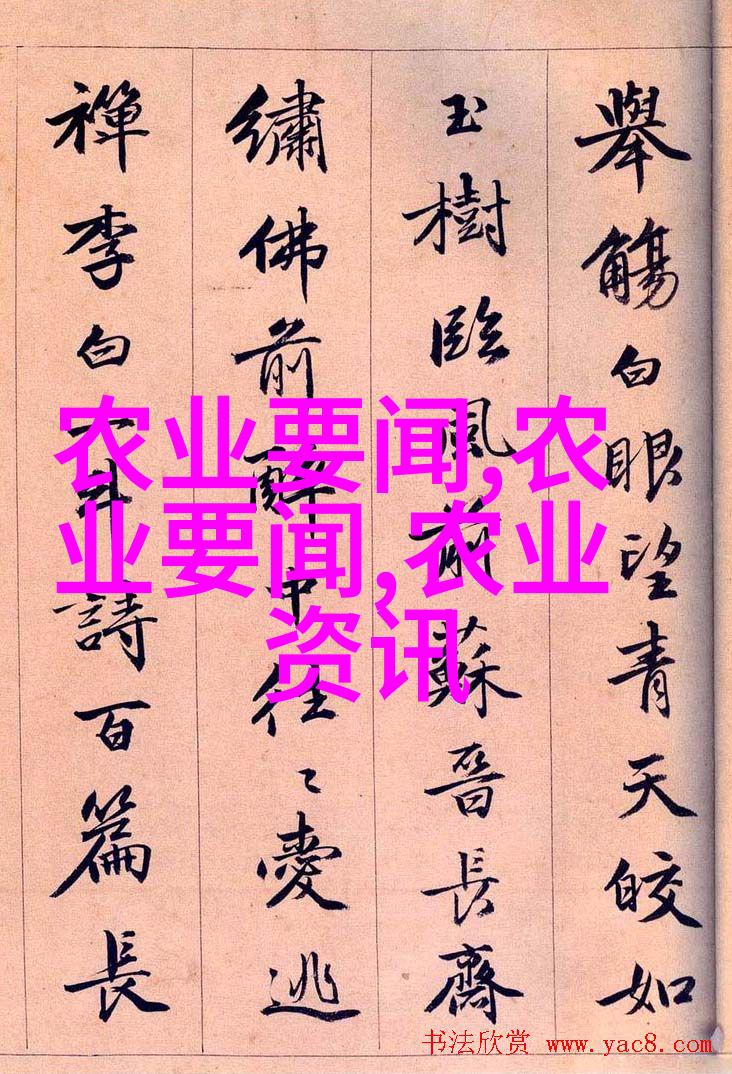 舉觴白眼望青天皎如
玉樹臨風前蘇晉長齋
繡佛前醉中往〻愛逃
禪李白一斗詩百篇長
农业要闻,农
业要闻,农业
资讯
书法欣赏 www.yac8.com